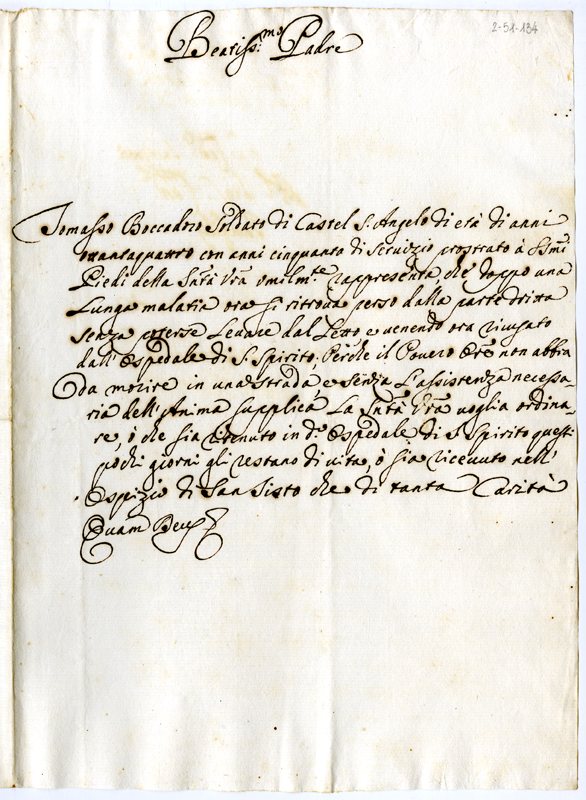 2-51-134
Beatiss.mo Padre
Tomasso Boccadoro Soldato di Castel S. Angelo di età di anni
ottantaquattro con anni cinquanta di servizio prostrato à SSmi
Piedi della Sntà Vrã umilm.te rappresenta che doppo una
Lunga malatia ora si ritrova perso dalla parte dritta
senza potersi Levare dal Letto e venendo ora ricusato
dall' Ospedale di S. Spirito, Perche il Povero Ore non abbia
da morire in una strada, e senza L'assistenza necessa-
ria dell' Anima supplica La Sntà Vrã voglia ordina-
re, ò che sia ritenuto in d.o Ospedale di S. Spirito questi
pochi giorni gli restano di vita, ò sia ricevuto nell'
Ospizio di San Sisto che di tanta Carità
Quam Deus